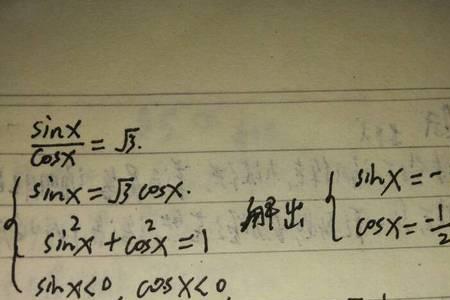 sinx/cosx = √3.
{ sinx = √3 cosx.
sin²x + cos²x = 1 解出 { sinx = -
cosx = -1/2
sinx<0, cosx<0,